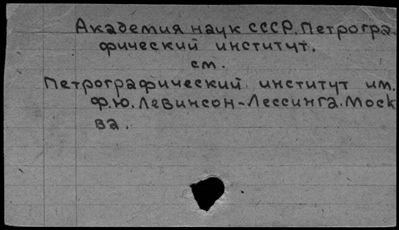 Академия наук СССР. Петрогра-
фический институт.
см.
Петрографический институт им.
Ф.Ю. Левинсон-Лессинга. Моск
ва.